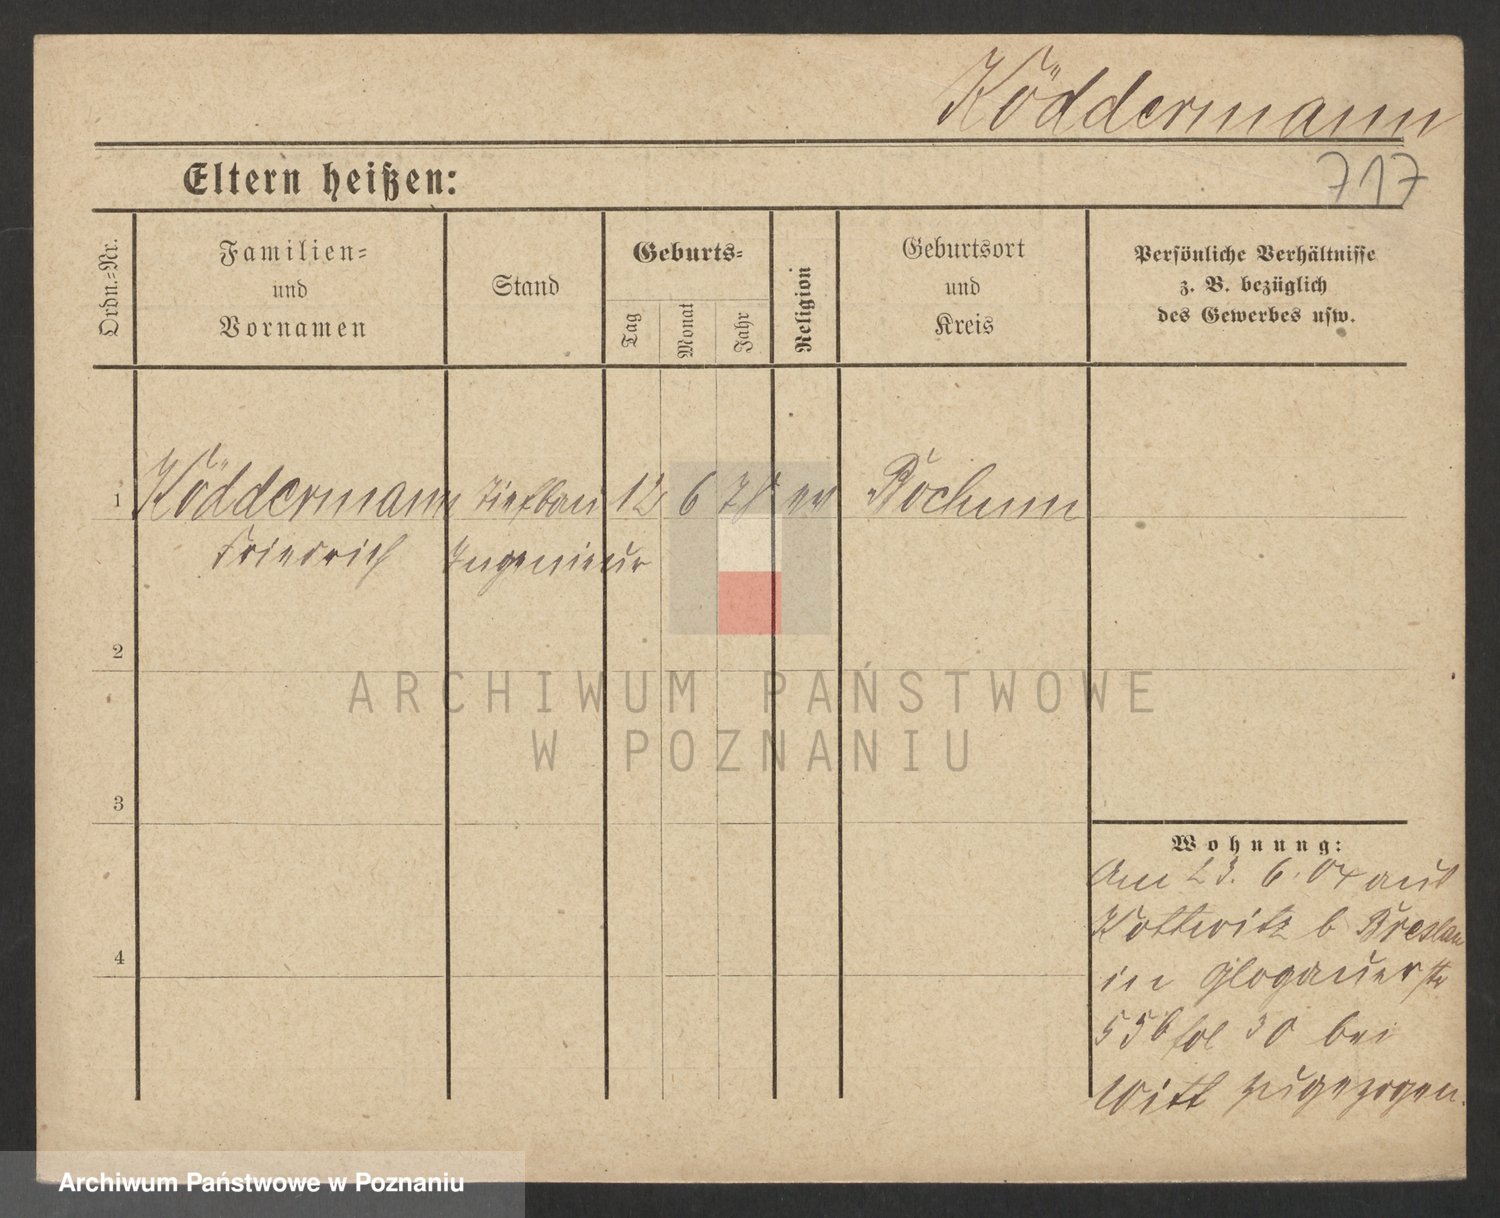 Köddermann
717
Eltern heißen:
Ordn.-Nr.
Familien-
und
Vornamen
Stand
Geburts-
Tag
Monat
Jahr
Religion
Geburtsort
und
Kreis
Persönliche Verhältnisse
z. B. bezüglich
des Gewerbes usw.
1 Köddermann Tiefbau 12 6 78 ev Bochum
Friedrich Ingenieur
2
3
4
Wohnung:
Am 23. 6. 04 aus
Kottwitz b Breslau
in Glogauerstr
bei
Witt zugezogen.
ARCHIWUM PAŃSTWOWE
W POZNANIU
Archiwum Państwowe w Poznaniu